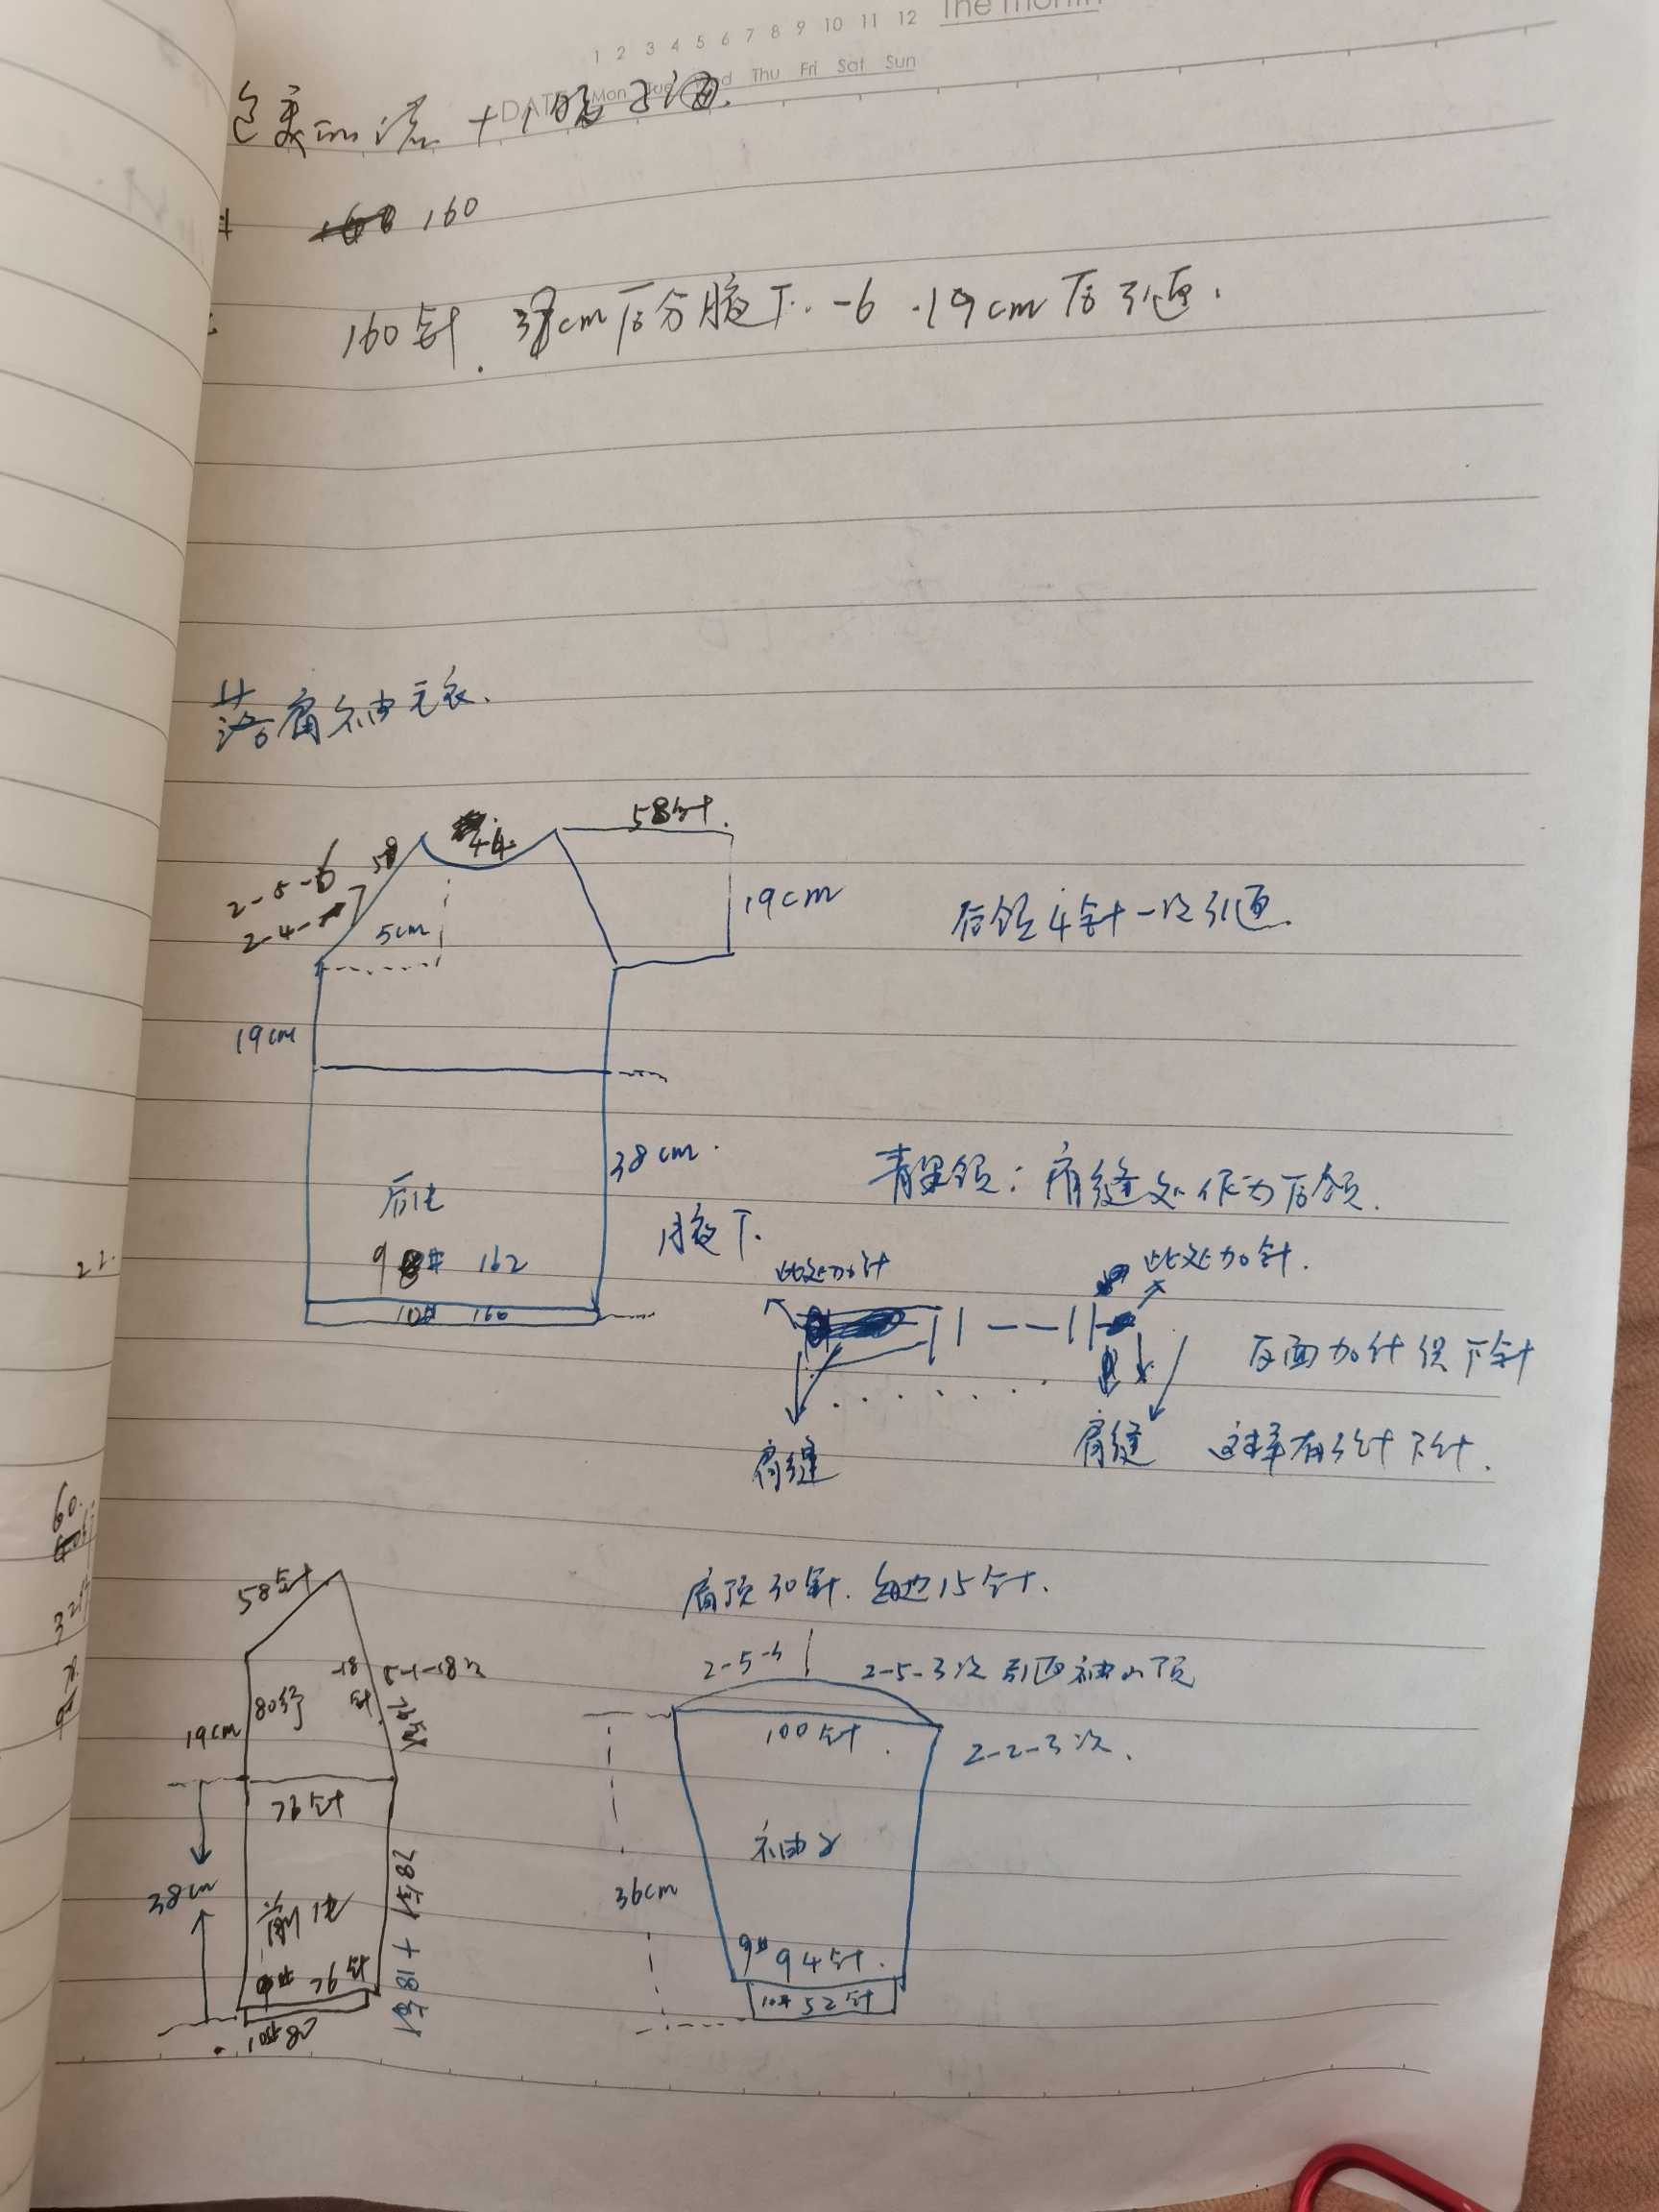 The Month
1 2 3 4 5 6 7 8 9 10 11 12
DATE Mon Tue Wed Thu Fri Sat Sun
160
160针. 38cm后分腋下. -6 .19cm后引返.
落肩袖毛衣.
58针.
44
58
2-5-6
2-4-
5cm
19cm
后领4针一次引返.
19cm
38cm.
青果领: 肩缝处作为后领.
后片
腋下.
9# 162
10# 160
此处加针
此处加针.
反面加针织下针
肩缝
肩缝
这样有3针下针.
22.
60.
58针
肩顶30针. 每边15针.
2-5-3
2-5-3次引返袖山顶
-18针.
5-1-18次
76针
80行
19cm
100针.
2-2-3次.
76针
袖子
36cm
38cm
前片
9# 94针.
76针
10# 52针
10# 80